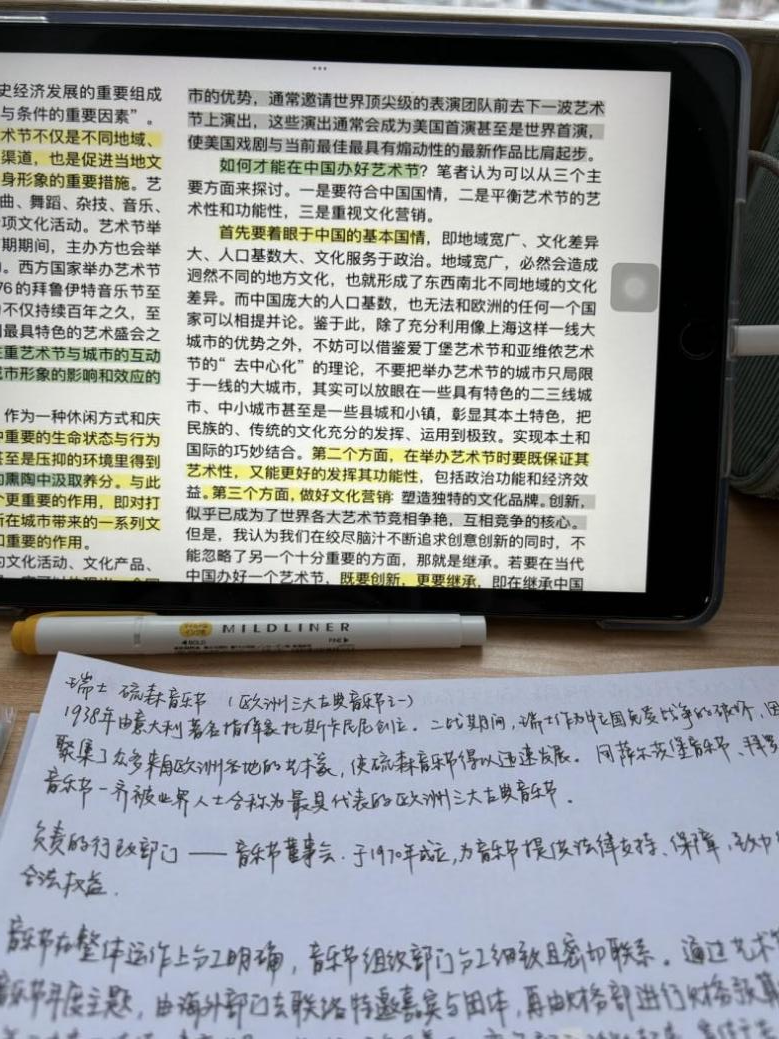 史经济发展的重要组成
与条件的重要因素”。
术节不仅是不同地域、
渠道，也是促进当地文
身形象的重要措施。艺
曲、舞蹈、杂技、音乐、
项文化活动。艺术节举
期期间，主办方也会举
。西方国家举办艺术节
76的拜鲁伊特音乐节至
不仅持续百年之久，至
最具特色的艺术盛会之
重艺术节与城市的互动
市形象的影响和效应的
作为一种休闲方式和庆
重要的生命状态与行为
至是压抑的环境里得到
熏陶中汲取养分。与此
更重要的作用，即对打
在城市带来的一系列文
重要的作用。
文化活动、文化产品、
市的优势，通常邀请世界顶尖级的表演团队前去下一波艺术
节上演出，这些演出通常会成为美国首演甚至是世界首演，
使美国戏剧与当前最佳最具有煽动性的最新作品比肩起步。
如何才能在中国办好艺术节？笔者认为可以从三个主
要方面来探讨。一是要符合中国国情，二是平衡艺术节的艺
术性和功能性，三是重视文化营销。
首先要着眼于中国的基本国情，即地域宽广、文化差异
大、人口基数大、文化服务于政治。地域宽广，必然会造成
迥然不同的地方文化，也就形成了东西南北不同地域的文化
差异。而中国庞大的人口基数，也无法和欧洲的任何一个国
家可以相提并论。鉴于此，除了充分利用像上海这样一线大
城市的优势之外，不妨可以借鉴爱丁堡艺术节和亚维侬艺术
节的“去中心化”的理论，不要把举办艺术节的城市只局限
于一线的大城市，其实可以放眼在一些具有特色的二三线城
市、中小城市甚至是一些县城和小镇，彰显其本土特色，把
民族的、传统的文化充分的发挥、运用到极致。实现本土和
国际的巧妙结合。第二个方面，在举办艺术节时要既保证其
艺术性，又能更好的发挥其功能性，包括政治功能和经济效
益。第三个方面，做好文化营销：塑造独特的文化品牌。创新，
似乎已成为了世界各大艺术节竞相争艳，互相竞争的核心。
但是，我认为我们在绞尽脑汁不断追求创意创新的同时，不
能忽略了另一个十分重要的方面，那就是继承。若要在当代
中国办好一个艺术节，既要创新，更要继承，即在继承中国
MILDLINER
瑞士 硫森音乐节 （欧洲三大古典音乐节之一）
1938年由意大利著名指挥家托斯卡尼尼创立。二战期间，瑞士作为中立国免受战争的破坏，因
聚集了众多来自欧洲各地的艺术家，使硫森音乐节得以迅速发展。同萨尔茨堡音乐节、拜罗
音乐节一齐被世界人士合称为最具代表的欧洲三大古典音乐节。
负责的行政部门——音乐节董事会。于1970年成立，为音乐节提供法律支持、保障，
合法权益。
音乐节在整体运作上分工明确，音乐节组织部门分工细致且密切联系。通过艺术
音乐节年度主题，由海外部门去联络特邀嘉宾与团体，再由财务部进行财务预算